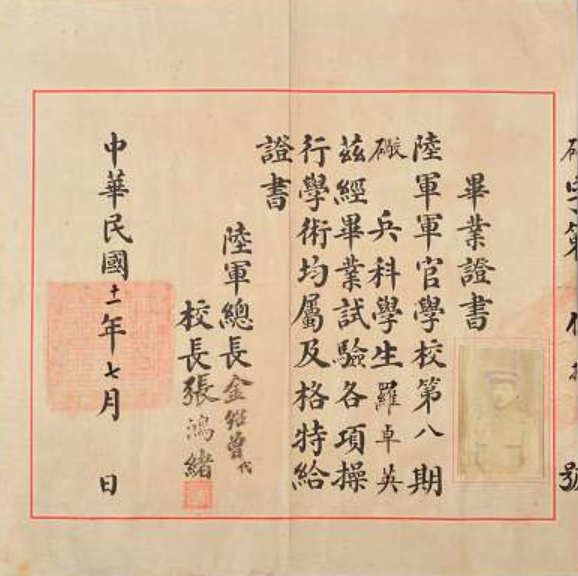 字第
號
畢業證書
陸軍軍官學校第八期
礮兵科學生羅卓英
茲經畢業試驗各項操
行學術均屬及格特給
證書
陸軍總長金繼曾代
校長張鴻緒
中華民國十一年七月 日